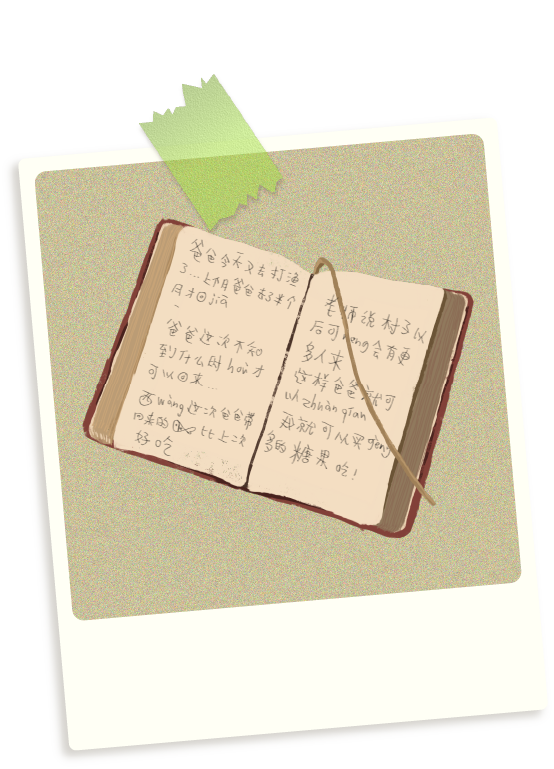 爸爸今天又去打渔
了…上个月爸爸去了半个
月才回jiā
爸爸这次不知
到什么时hoù才
可以回来…
西wàng这次爸爸带
回来的 比上次
好吃
老师说村子以
后可néng会有更
多人来
这样爸爸就可
以zhuàn qian
我就可以买gèng
多的糖果吃!